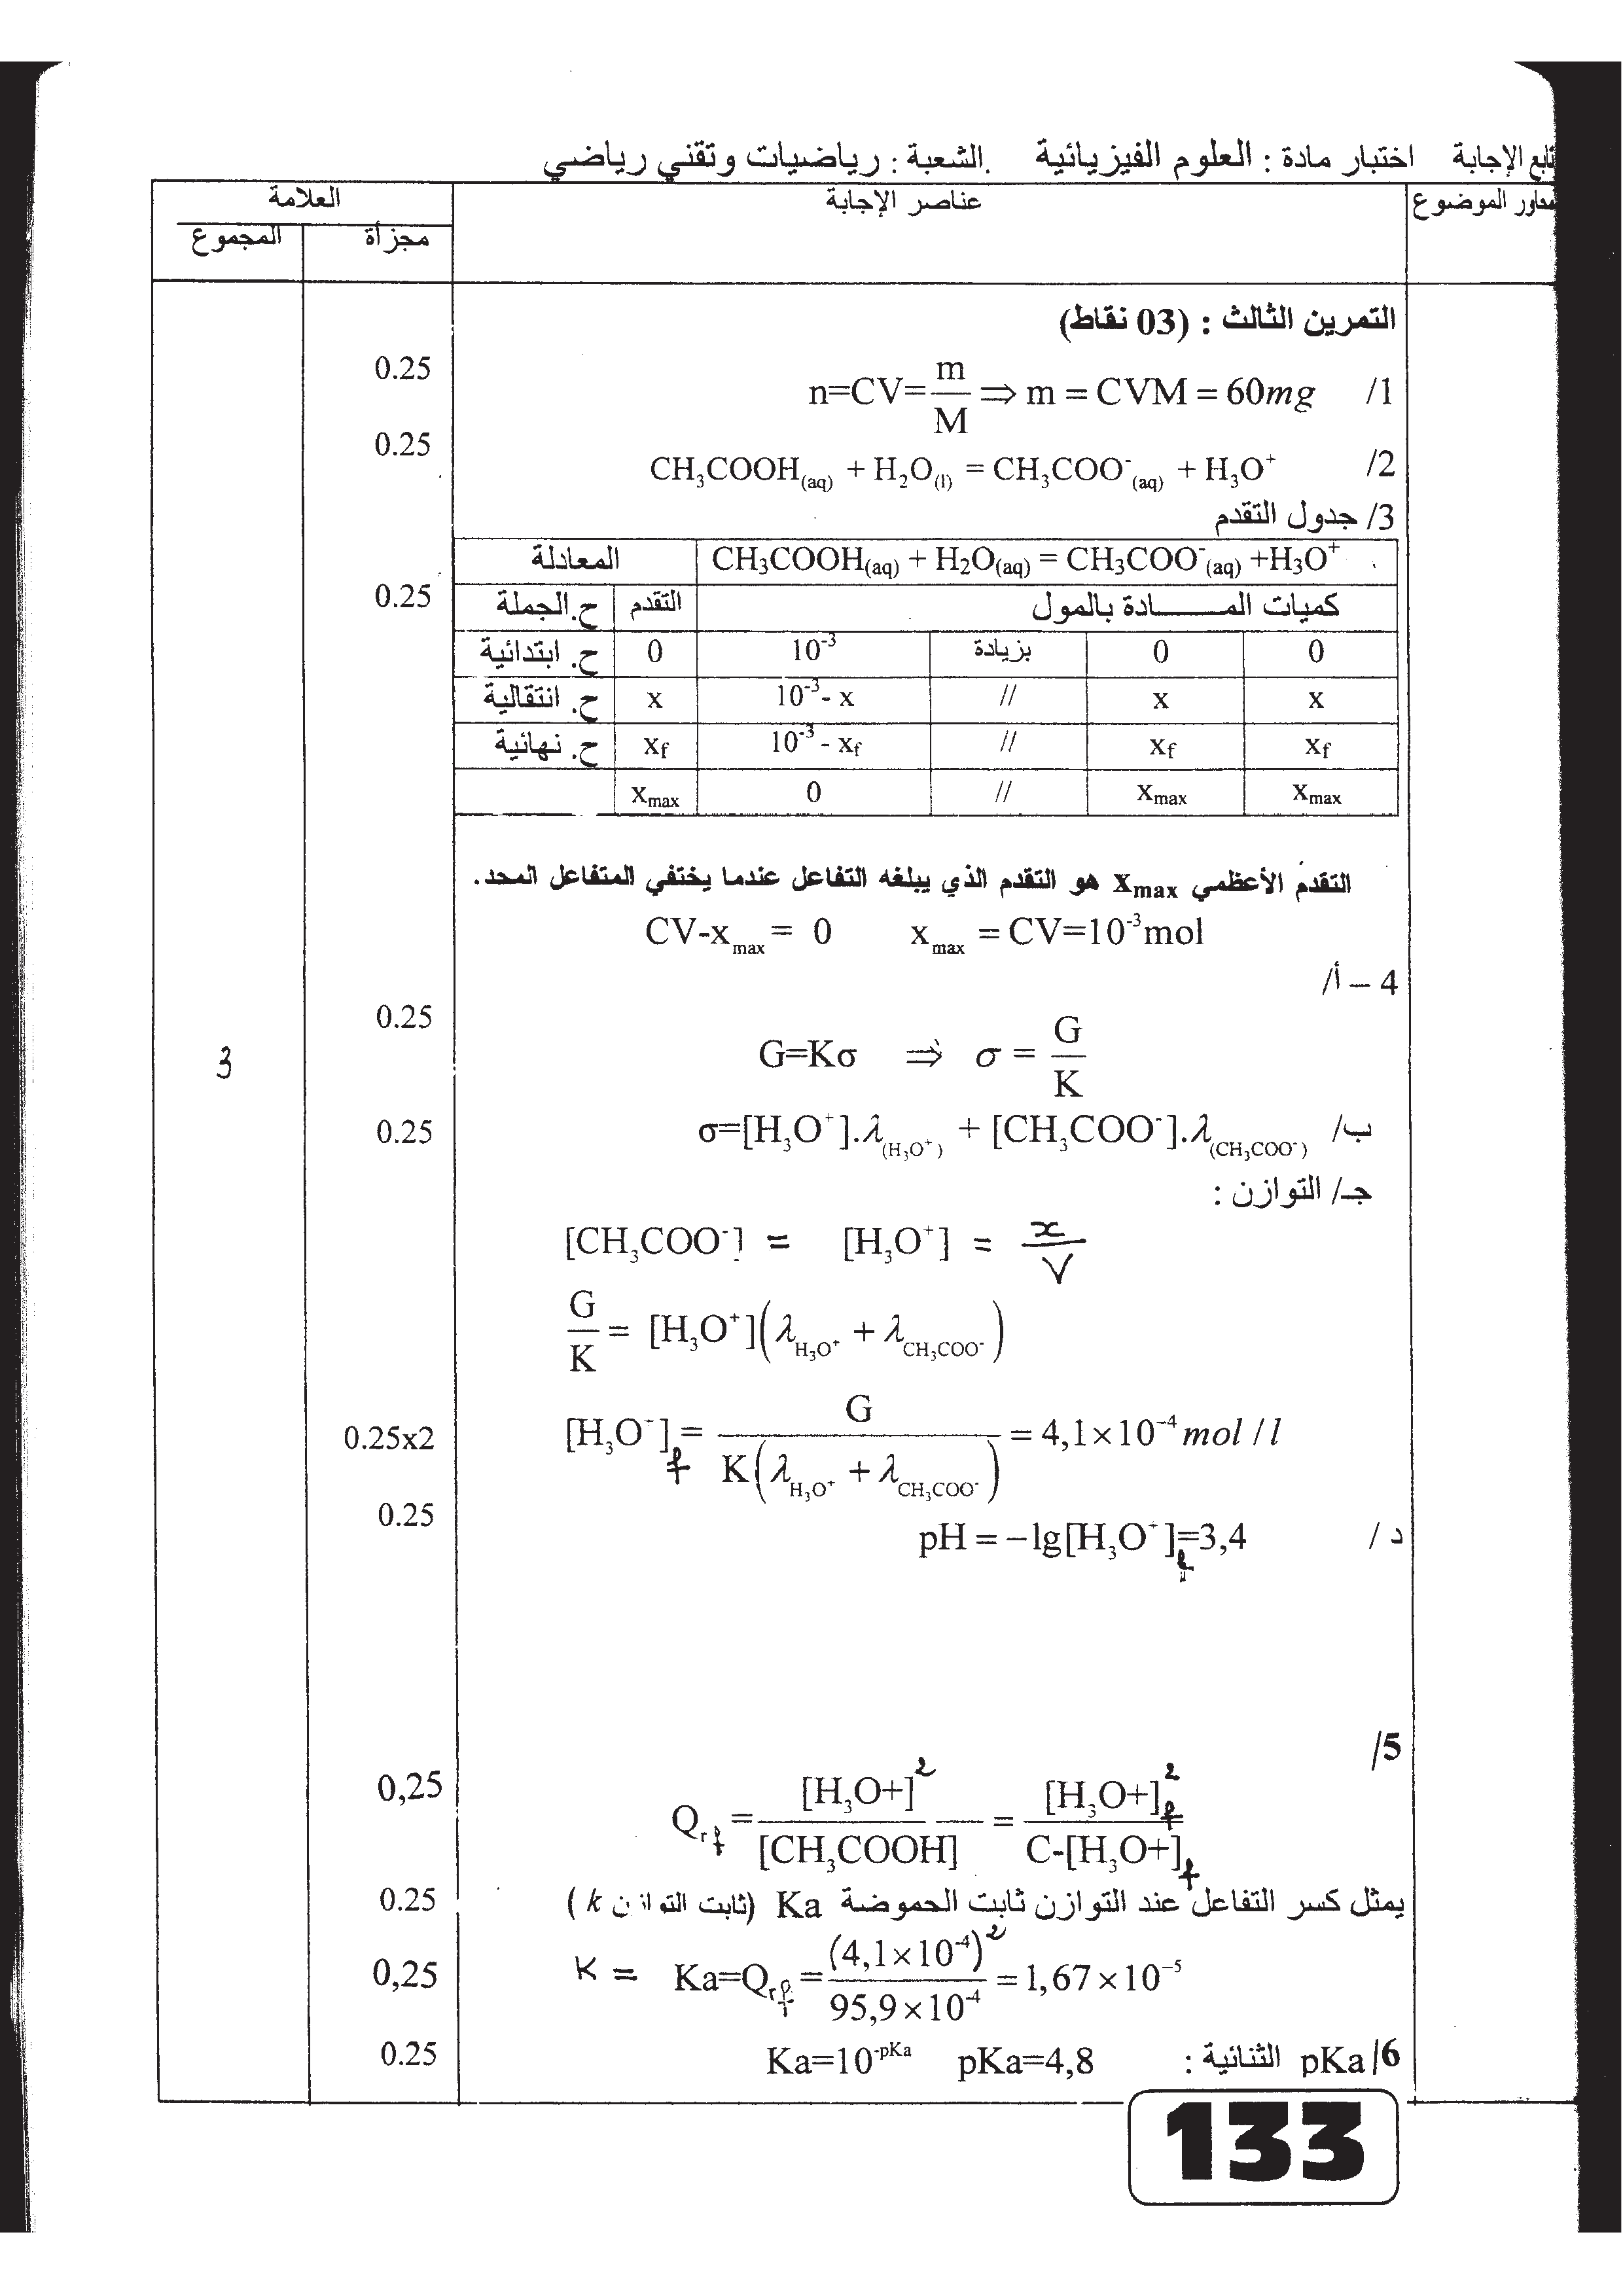 تابع الإجابة اختبار مادة : العلوم الفيزيائية .الشعبة : رياضيات وتقني رياضي
محاور الموضوع عناصر الإجابة العلامة
مجزأة المجموع
التمرين الثالث : (03 نقاط)
1/ n=CV=m/M ⇒ m = CVM = 60mg 0.25
2/ CH₃COOH(aq) + H₂O(l) = CH₃COO⁻(aq) + H₃O⁺ 0.25
3/ جدول التقدم
المعادلة CH₃COOH(aq) + H₂O(aq) = CH₃COO⁻(aq) +H₃O⁺
ح.الجملة التقدم كميات المـــــــادة بالمول 0.25
ح. ابتدائية 0 10⁻³ بزيادة 0 0
ح. انتقالية x 10⁻³- x // x x
ح. نهائية xf 10⁻³ - xf // xf xf
xmax 0 // xmax xmax
التقدم الأعظمي xmax هو التقدم الذي يبلغه التفاعل عندما يختفي المتفاعل المحد.
CV-xmax = 0 xmax = CV=10⁻³mol
4 – أ/
G=Kσ ⇒ σ = G/K 0.25
3
ب/ σ=[H₃O⁺].λ(H₃O⁺) + [CH₃COO⁻].λ(CH₃COO⁻) 0.25
جـ/ التوازن :
[CH₃COO⁻] = [H₃O⁺] = x/V
G/K = [H₃O⁺](λH₃O⁺ + λCH₃COO⁻)
[H₃O⁺]f = G/K(λH₃O⁺ + λCH₃COO⁻) = 4,1×10⁻⁴ mol / l 0.25x2
د / pH = −lg[H₃O⁺]f=3,4 0.25
5/
Qrf = [H₃O+]²/[CH₃COOH] = [H₃O+]f²/C-[H₃O+]f 0,25
يمثل كسر التفاعل عند التوازن ثابت الحموضة Ka (ثابت التوازن k) 0.25
K = Ka=Qrf = (4,1×10⁻⁴)²/95,9×10⁻⁴ = 1,67×10⁻⁵ 0,25
6/ pKa الثنائية : Ka=10⁻ᵖᴷᵃ pKa=4,8 0.25
133